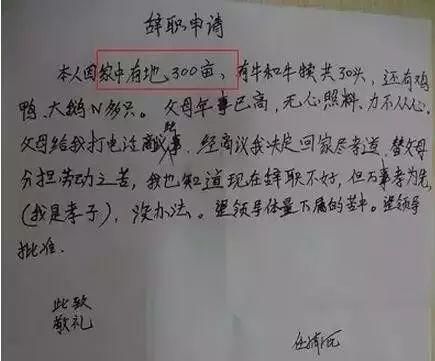 辞职申请
本人因家中有地300亩,有牛和牛犊共30头,还有鸡
鸭、大鹅N多只。父母年事已高,无心照料,力不从心。
父母给我打电话商议此事,经商议我决定回家尽孝道,替父母
分担劳动之苦,我也知道现在辞职不好,但万事孝为先,
(我是孝子),没办法。望领导体量下属的苦中。望领导
批准.
此致
敬礼